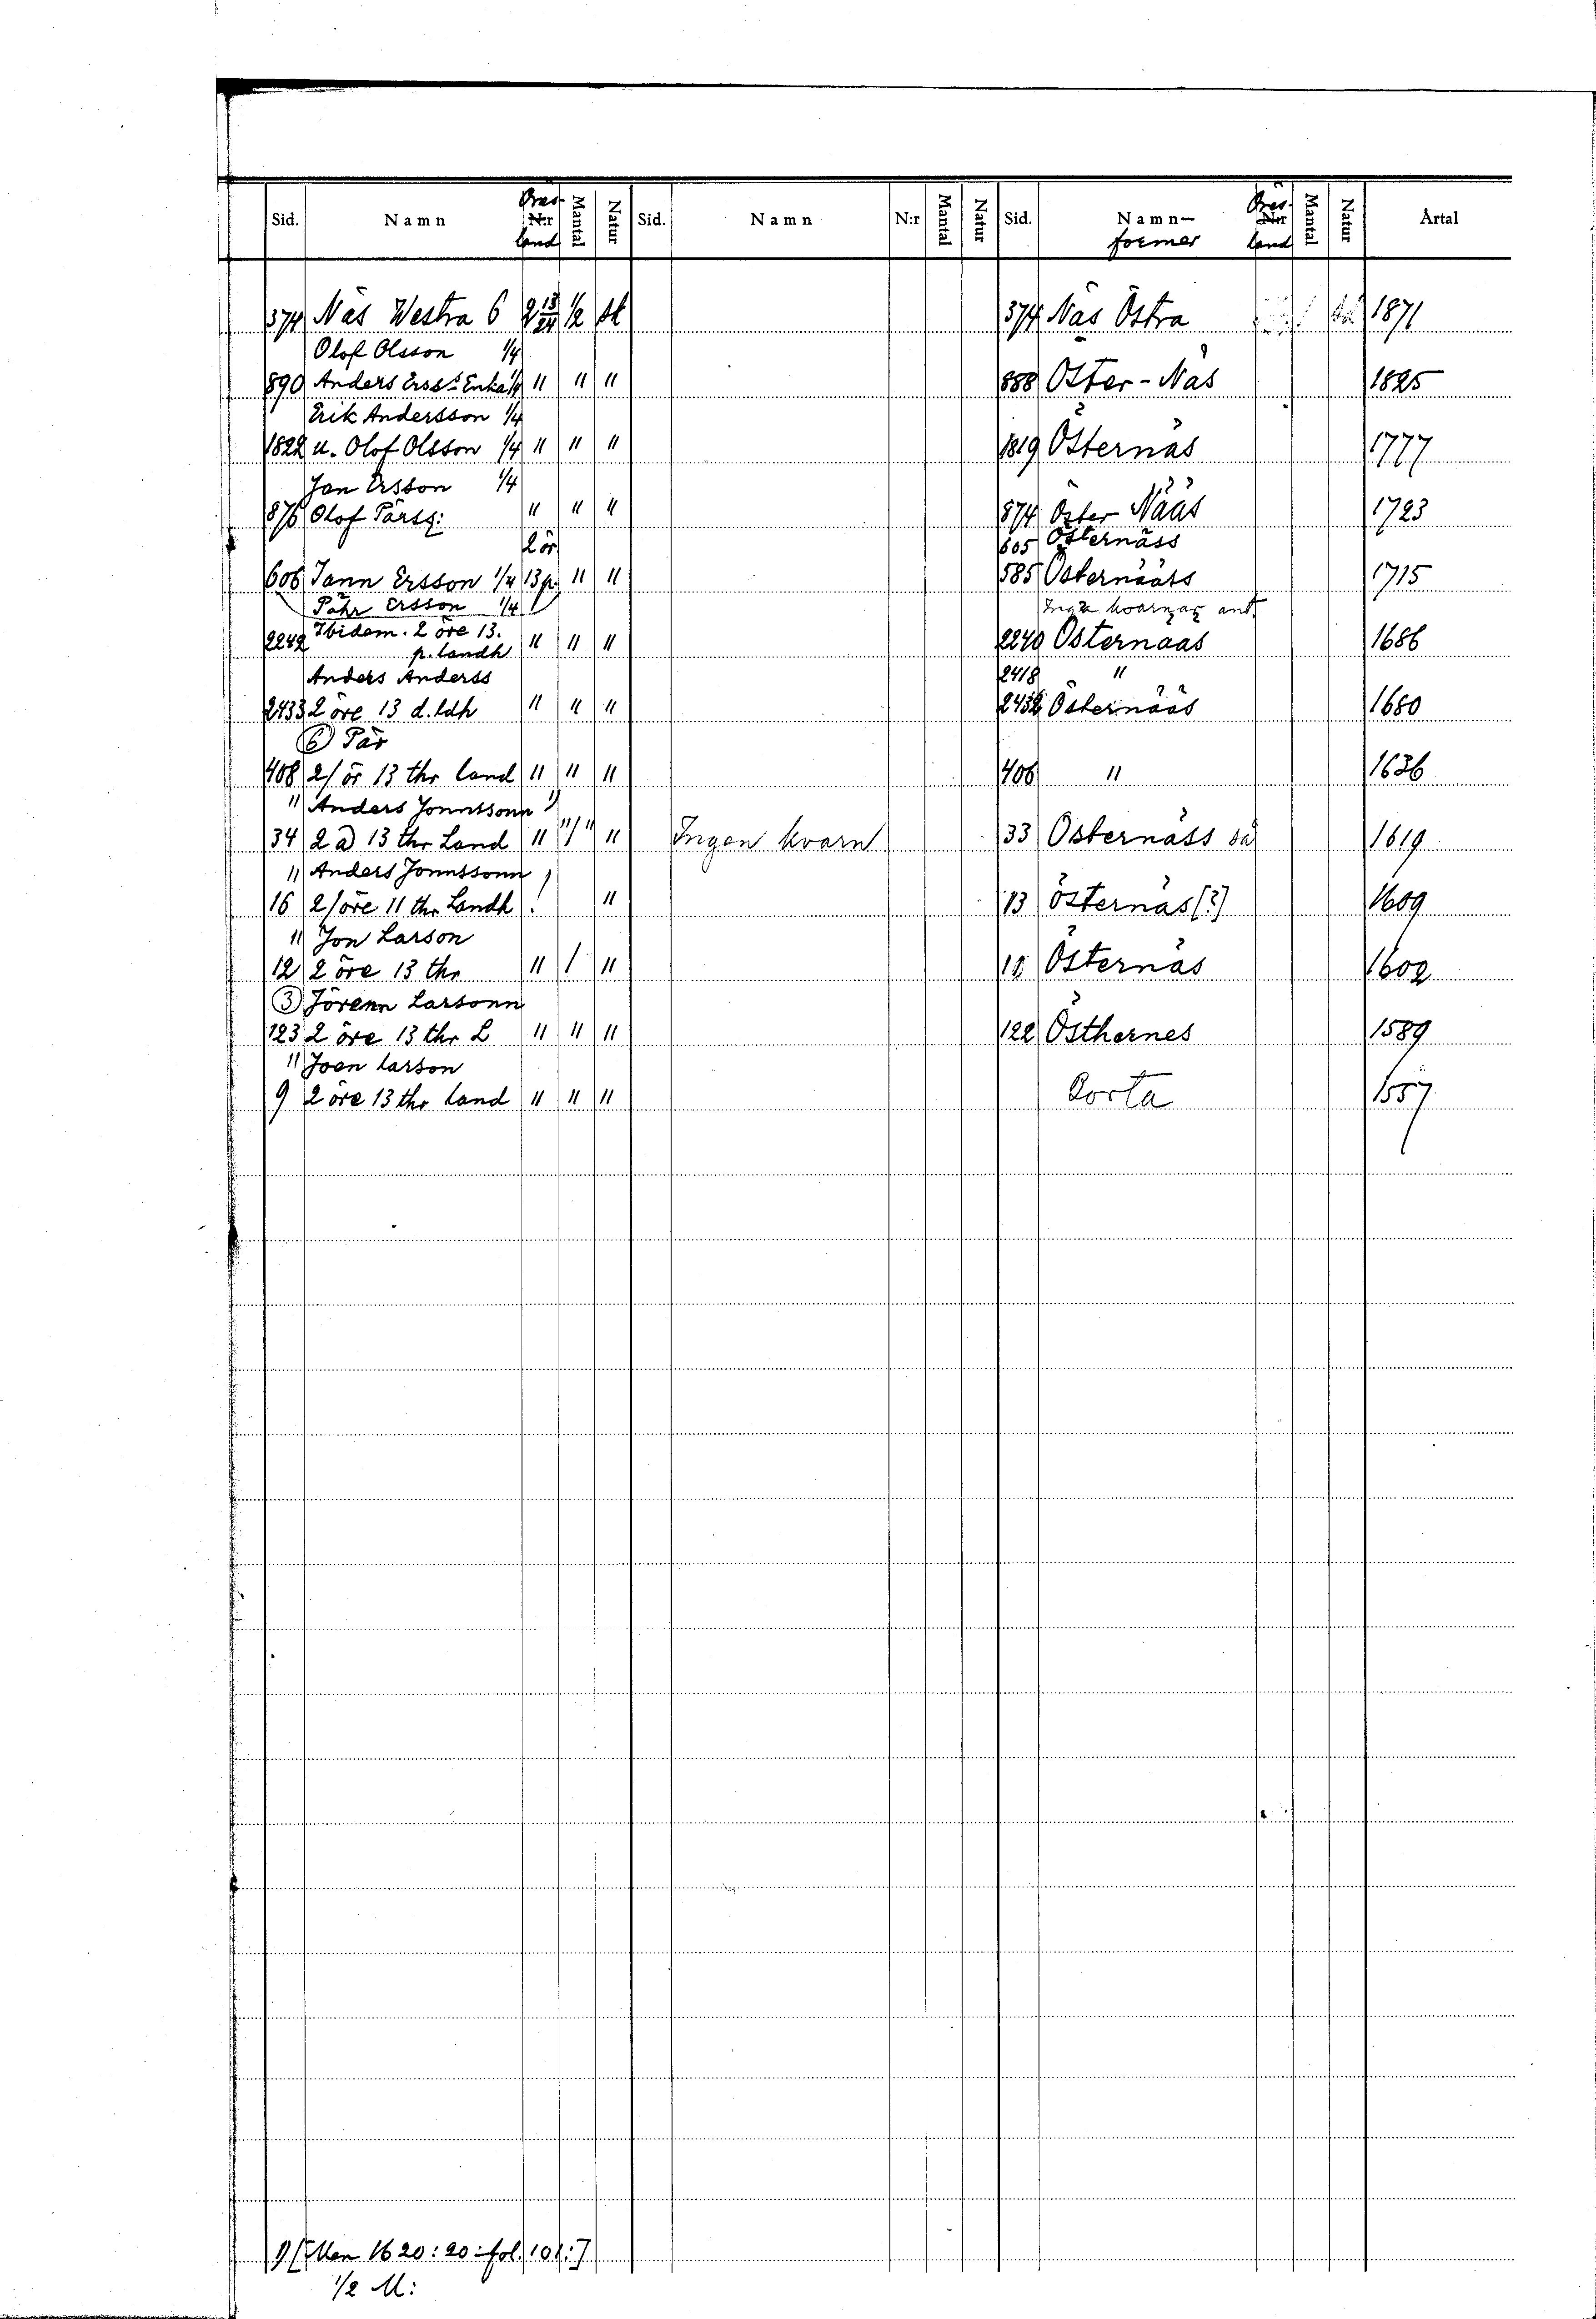 Sid. Namn Öres- N:r land Mantal Natur Sid. Namn N:r Mantal Natur Sid. Namn- former Öres- N:r land Mantal Natur Årtal
374 Näs Westra 6 2 13/24 1/2 sk 374 Näs Östra 1871
Olof Olsson 1/4
890 Anders Erss:s Enka 1/4 " " " 888 Öster-Näs 1825
Erik Andersson 1/4
1822 u. Olof Olsson 1/4 " " " 1819 Östernäs 1777
Jan Ersson 1/4
876 Olof Pärss: " " " 874 Öster Nääs 1723
2 ör 605 Östernäss
606 Jann Ersson 1/4 13 p. " " 585 Östernääs 1715
Pähr Ersson 1/4 Inga kvarnar ant.
2242 Ibidem. 2 öre 13. p. landh " " " 2240 Östernaas 1686
Anders Anderss 2418 "
2433 2 öre 13 d. ldh " " " 2432 Östernääs 1680
6 Pär
408 2/ör 13 thr land " " " 406 " 1636
" Anders Jonnssonn 1)
34 2 a) 13 thr Land " "/" " Ingen kvarn 33 Östernäss så 1619
" Anders Jonnssonn
16 2/öre 11 thr Landh ! " 13 östernäs [?] 1609
" Jon Larson
12 2 öre 13 thr " / " 11 Östernäs 1602
3 Jörenn Larsonn
123 2 öre 13 thr L " " " 122 Östhernes 1589
" Joen larson
9 2 öre 13 thr land " " " Borta 1557
1) [Men 1620:20:fol. 101:]
1/2 M: